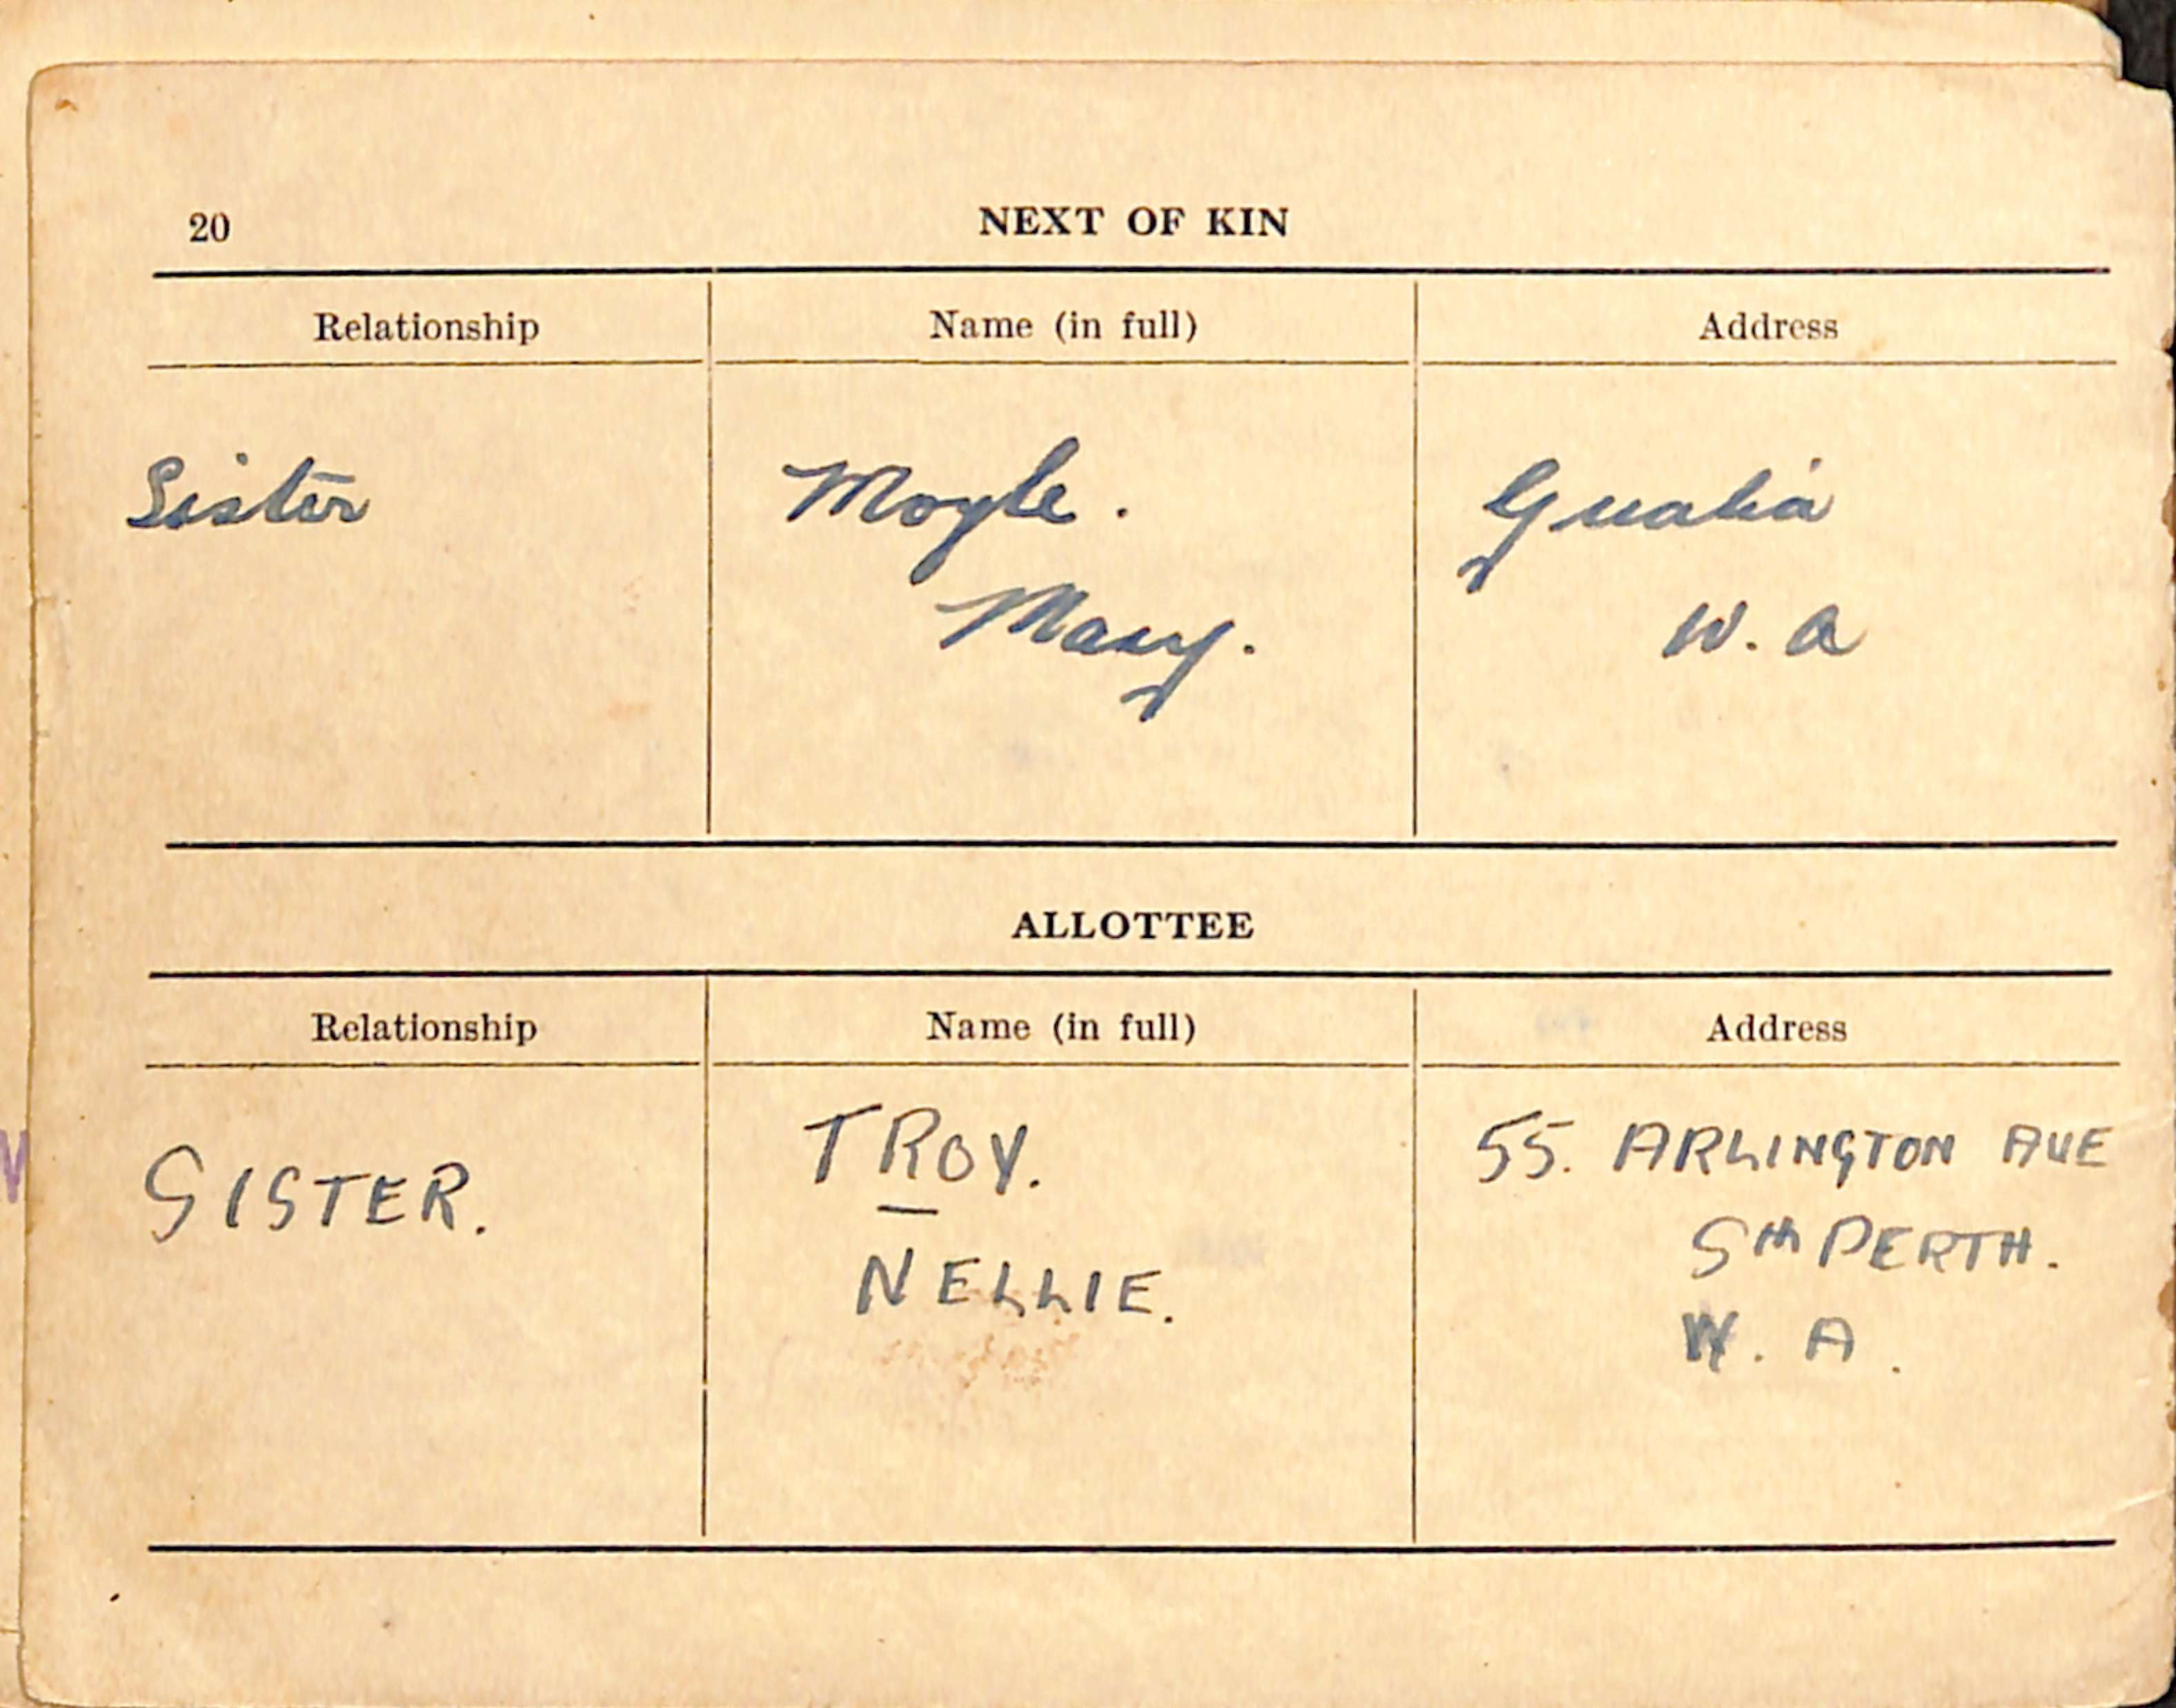 20 NEXT OF KIN
Relationship Name (in full) Address
Sister Moyle. Gwalia
Mary. W. A
ALLOTTEE
Relationship Name (in full) Address
SISTER. TROY. 55. ARLINGTON AVE
NELLIE. Sth PERTH.
W. A.